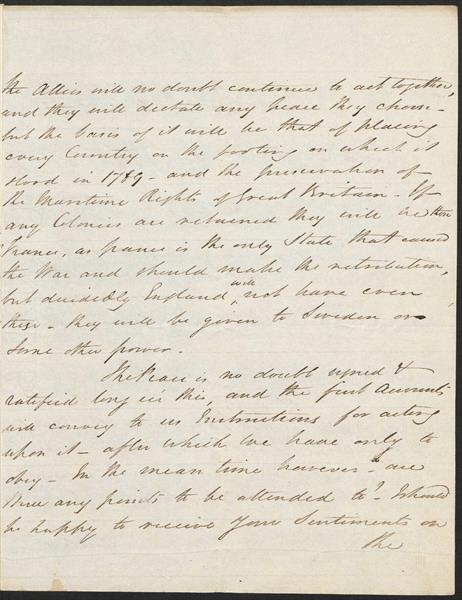 the Allies will no doubt continue to act together,
and they will dictate any peace they choose -
but the basis of it will be that of placing
every Country on the footing on which it
stood in 1789 - and the preservation of
the Maritime Rights of Great Britain - If
any Colonies are retained they will be those
France, as france is the only State that caused
the War and should make the retribution,
but decidedly England will not have even
these - they will be given to Sweden or
some other power.
The Peace is no doubt signed &
ratified long ere this, and the first Accounts
will convey to us Instructions for acting
upon it - after which we have only to
obey - In the mean time however - are
there any points to be attended to? - I should
be happy to receive Your Sentiments on
the